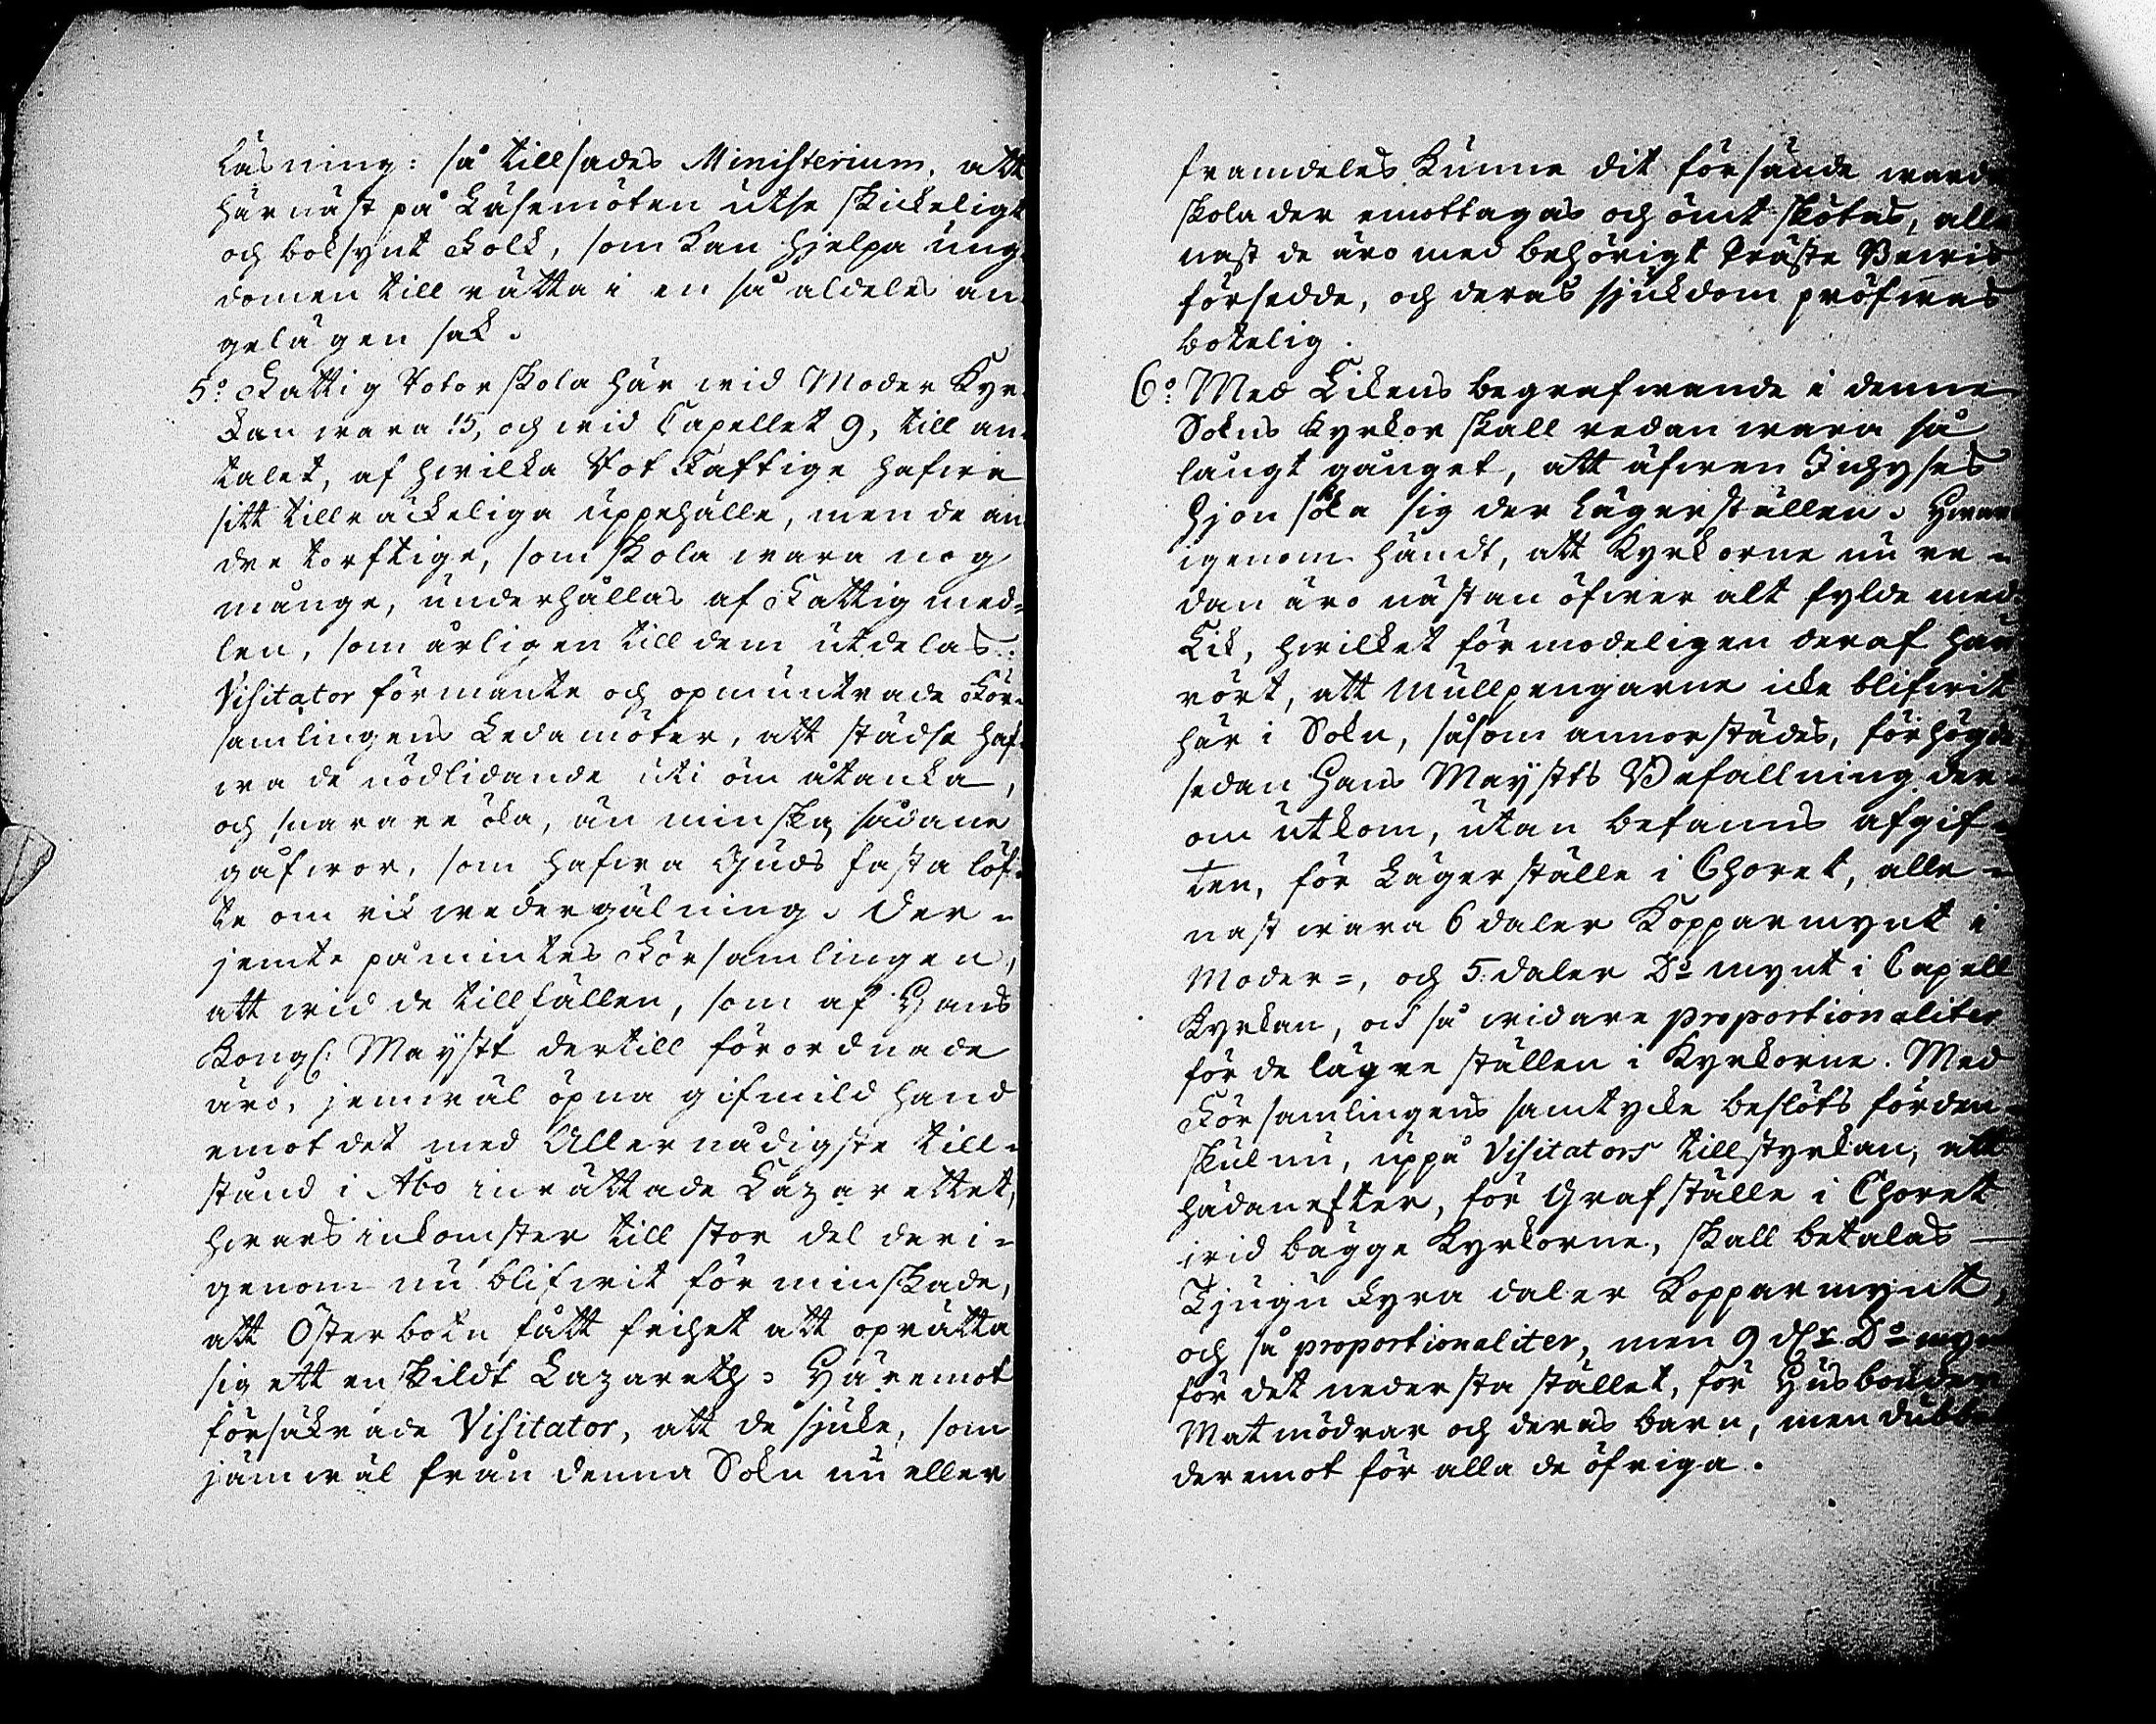 läsning: så tillsades Ministerium, att
härnäst på Läsemöten utse skickeligt
och boksynt Folk, som kan hjelpa ung-
domen till rätta i en så aldeles an-
gelägen sak.
5:o Fattig Votor skola här wid Moder Kyr-
kan wara 15, och wid Capellet 9, till an-
talet, af hwilka Rotfattige hafwa
sitt tillräckeliga uppehälle, men de an-
dre torftige, som skola wara nog
månge, underhållas af Fattigmed-
len, som årligen till dem utdelas.
Visitator förmante och opmuntrade För-
samlingens Ledamöter, att städse haf-
wa de nödlidande uti öm åtanka,
och snarare öka, än minska, sådane
gåfwor, som hafwa Guds fasta löf-
te om rik wedergälning. Der-
jemte påmintes Församlingen,
att wid de tillfällen, som af Hans
Kongl: Maystt dertill förordnade
äro, jemwäl öpna gifmild hand
emot det med Allernådigste till-
stånd i Åbo inrättade Lazarettet,
hwars inkomster till stor del deri-
genom nu blifwit förminskade,
att Österbotn fått frihet att oprätta
sig ett enskildt Lazareth. Häremot
försäkrade Visitator, att de sjuke, som
jämwäl från denna Sokn nu eller
framdeles kunna dit försände warda
skola der emottagas och ömt skötas, alle-
nast de äro med behörigt Präste Bewis
försedde, och deras sjukdom pröfwas
botelig.
6:o Med Likens begrafwande i denne
Sokns Kyrkor skall redan wara så
långt gånget, att äfwen Inhyses
Hjon söka sig der Lägerställen. Hwar-
igenom händt, att Kyrkorne nu re-
dan äro nästan öfwer alt fylde med
Lik, hwilket förmodeligen deraf här-
rört, att Mullpengarne icke blifwit
här i Sokn, såsom annorstädes, förhögde
sedan Hans Maystts Befallning der-
om utkom, utan befanns afgif-
ten, för Lägerställe i Choret, alle-
nast wara 6 daler Kopparmynt i
Moder-, och 5. daler D:o mynt i Capell
Kyrkan, och så widare proportionaliter
för de lägre ställen i Kyrkorne. Med
Församlingens samtycke beslöts förden-
skul nu, uppå Visitators tillstyrkan, att
hädanefter, för Grafställe i Choret
wid bägge Kyrkorne, skall betalas
Tjugu Fyra daler Kopparmynt,
och så proportionaliter, men 9 dlr D:o mynt
för det nedersta stället, för Husbönder
Matmödrar och deras barn, men dubbelt
deremot för alla de öfriga.